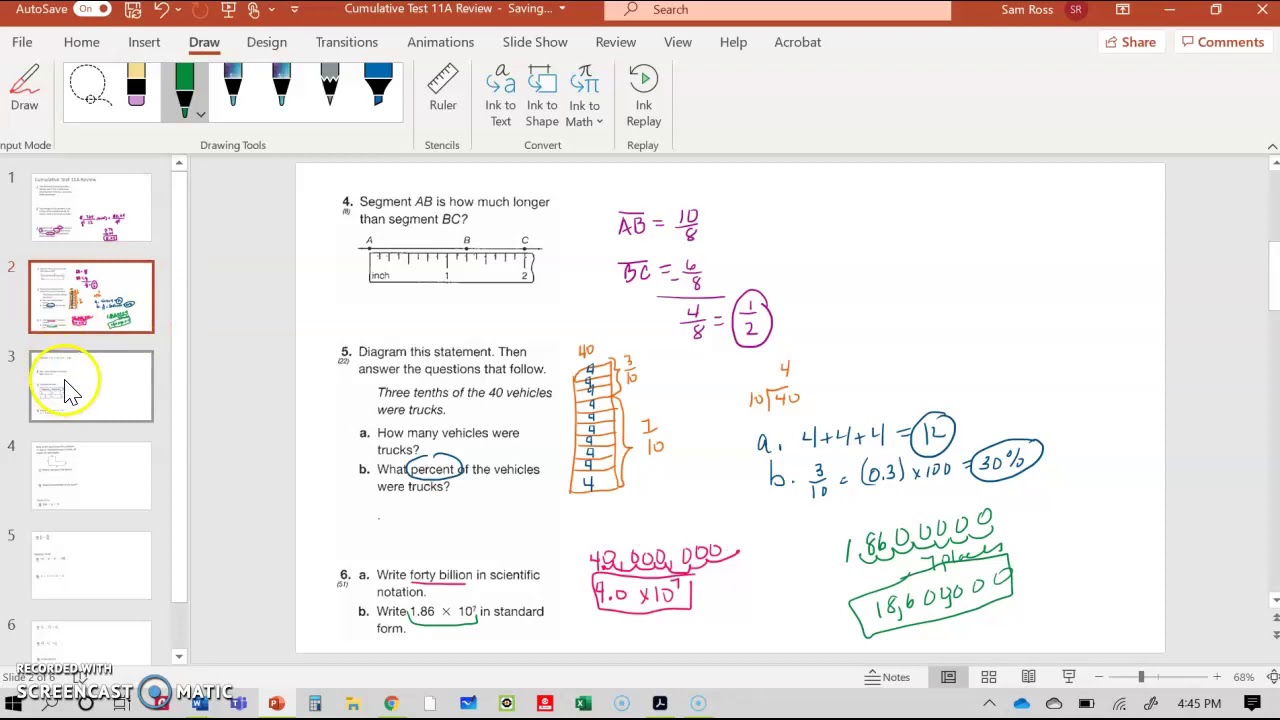 AutoSave On Cumulative Test 11A Review - Saving... Search Sam Ross SR
File Home Insert Draw Design Transitions Animations Slide Show Review View Help Acrobat Share Comments
Draw Ruler Ink to Text Ink to Shape Ink to Math Ink Replay
Input Mode Drawing Tools Stencils Convert Replay
1
Cumulative Test 11A Review
2
3
4
5
6
4. Segment AB is how much longer
(8) than segment BC?
A B C
inch 1 2
AB = 10/8
BC = - 6/8
4/8 = 1/2
5. Diagram this statement. Then
(22) answer the questions that follow.
Three tenths of the 40 vehicles
were trucks.
a. How many vehicles were
trucks?
b. What percent of the vehicles
were trucks?
40
4
4
4
4
4
4
4
4
4
4
3/10
7/10
4
10 40
a. 4+4+4 = 12
b. 3/10 = (0.3) × 100 = 30%
6. a. Write forty billion in scientific
(51) notation.
b. Write 1.86 × 10⁷ in standard
form.
40,000,000
4.0 × 10⁷
1,8600000
7 places
18,600,000
RECORDED WITH
SCREENCAST MATIC
Slide 2 of 6 Notes 68%
4:45 PM